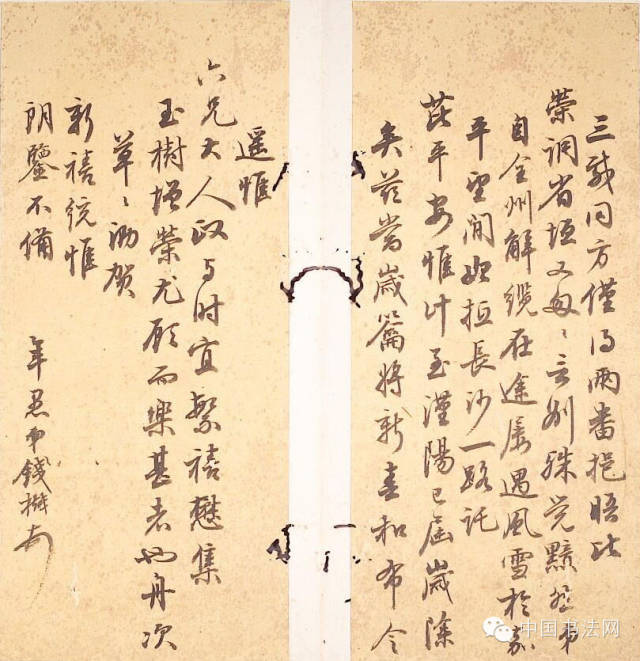 三載同方僅得兩番挹晤比
榮調省垣又匆匆言別殊覺黯然弟
自全州解纜在途屢遇風雪於
平望間始抵長沙一路託
茈平安惟計至漢陽已屆歲除
矣茲當歲籥將新春和布令
遥惟
六兄大人政与时宜繁禧懋集
玉樹增榮尤願而樂甚者也舟次
草草泐贺
新禧統惟
朗鑒不備
年愚弟錢
中国书法网